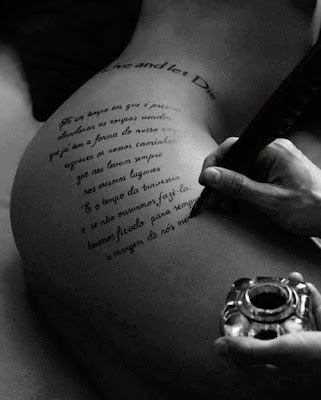 Live and let Die
Há um tempo em que é preciso
abandonar as roupas usadas
que já tem a forma do nosso corpo
esquecer os nossos caminhos
que nos levam sempre
aos mesmos lugares
É o tempo da travessia
e se não ousarmos fazê-la
teremos ficado para sempre
à margem de nós mes